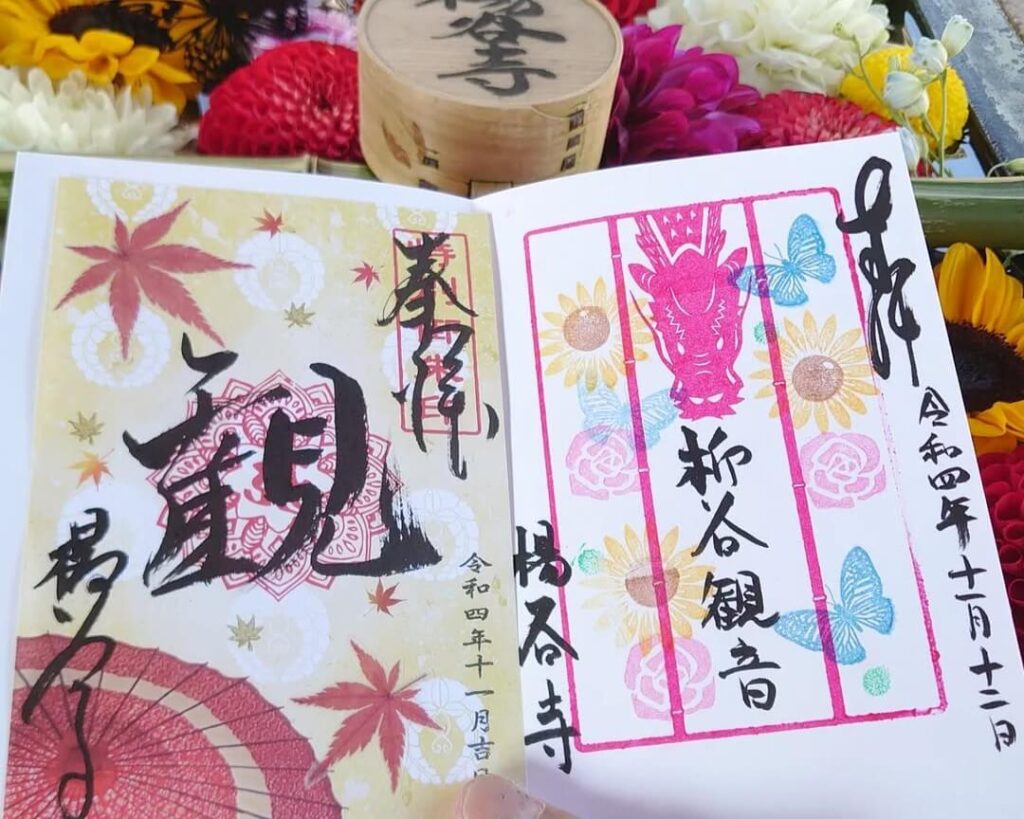 楊谷寺
奉拝
柳谷観音
楊谷寺
令和四年十一月十二日
奉拝
特別御朱印
観
楊谷寺
令和四年十一月吉日